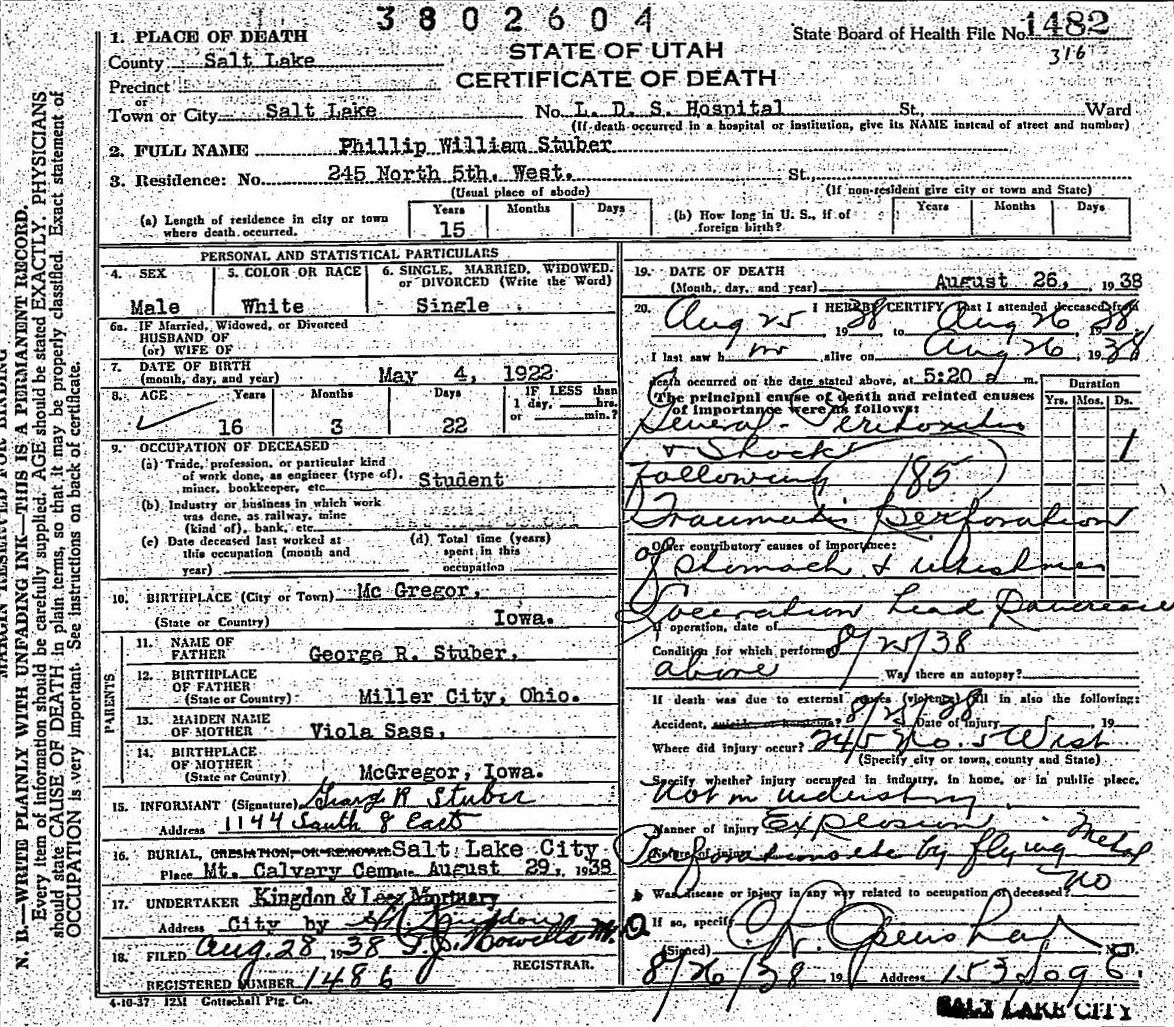 3802604
State Board of Health File No. 1482
316
1. PLACE OF DEATH
STATE OF UTAH
County Salt Lake
CERTIFICATE OF DEATH
Precinct
or
Town or City Salt Lake No. L. D. S. Hospital St., Ward
(If death occurred in a hospital or institution, give its NAME instead of street and number)
2. FULL NAME Phillip William Stuber
3. Residence: No. 245 North 5th. West. St.,
(Usual place of abode) (If non-resident give city or town and State)
(a) Length of residence in city or town where death occurred. Years 15 Months Days
(b) How long in U. S., if of foreign birth? Years Months Days
PERSONAL AND STATISTICAL PARTICULARS
4. SEX Male
5. COLOR OR RACE White
6. SINGLE, MARRIED, WIDOWED, or DIVORCED (Write the Word) Single
6a. IF Married, Widowed, or Divorced
HUSBAND OF
(or) WIFE OF
7. DATE OF BIRTH
(month, day, and year) May 4, 1922
8. AGE Years Months Days IF LESS than
1 day, hrs.
or min.?
16 3 22
9. OCCUPATION OF DECEASED
(a) Trade, profession, or particular kind
of work done, as engineer (type of),
miner, bookkeeper, etc. Student
(b) Industry or business in which work
was done, as railway, mine
(kind of), bank, etc.
(c) Date deceased last worked at
this occupation (month and
year)
(d) Total time (years)
spent in this
occupation
10. BIRTHPLACE (City or Town) Mc Gregor,
(State or Country) Iowa.
PARENTS
11. NAME OF
FATHER George R. Stuber,
12. BIRTHPLACE
OF FATHER
(State or Country) Miller City, Ohio.
13. MAIDEN NAME
OF MOTHER Viola Sass,
14. BIRTHPLACE
OF MOTHER
(State or County) McGregor, Iowa.
15. INFORMANT (Signature) George R Stuber
Address 1144 South 8 East
16. BURIAL, CREMATION OR REMOVAL Salt Lake City
Place Mt. Calvary Cem Date August 29, 1938
17. UNDERTAKER Kingdon & Lees Mortuary
Address City by
18. FILED Aug. 28, 1938 T.J. Howells M.D
REGISTRAR.
REGISTERED NUMBER 1486
4-10-37 12M Gottschall Ptg. Co.
19. DATE OF DEATH
(Month, day, and year) August 26, 1938
20. I HEREBY CERTIFY that I attended deceased from
Aug 25 1938 to Aug 26, 1938
I last saw h im alive on Aug 26, 1938
death occurred on the date stated above, at 5:20 a m.
The principal cause of death and related causes
of importance were as follows:
Duration
Yrs. Mos. Ds.
General Peritonitis
& Shock 1
following 185
Traumatic Perforation
Other contributory causes of importance:
of stomach & intestines
Laceration head Pancreas
If operation, date of 8/25/38
Condition for which performed
above Was there an autopsy?
If death was due to external causes (violence) fill in also the following:
Accident, suicide or homicide? 8/25/38 Date of injury , 19
Where did injury occur? 245 No. 5 West
(Specify city or town, county and State)
Specify whether injury occurred in industry, in home, or in public place.
Not in industry.
Manner of injury Explosion
Nature of injury Perforations etc by flying metal
Was disease or injury in any way related to occupation of deceased? no
If so, specify
(Signed) M. D.
8/26/38 19 Address 153 So g E.
SALT LAKE CITY
MARGIN RESERVED FOR BINDING
N. B.—WRITE PLAINLY WITH UNFADING INK—THIS IS A PERMANENT RECORD.
Every item of information should be carefully supplied. AGE should be stated EXACTLY. PHYSICIANS
should state CAUSE OF DEATH in plain terms, so that it may be properly classified. Exact statement of
OCCUPATION is very important. See instructions on back of certificate.